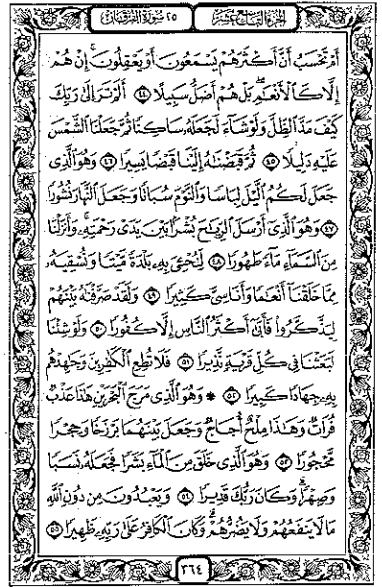 الجزء التاسع عشر
٢٥ سورة الفرقان
أَمْ تَحْسَبُ أَنَّ أَكْثَرَهُمْ يَسْمَعُونَ أَوْ يَعْقِلُونَ إِنْ هُمْ
إِلَّا كَالْأَنْعَـٰمِ بَلْ هُمْ أَضَلُّ سَبِيلًا ٤٤ أَلَمْ تَرَ إِلَىٰ رَبِّكَ
كَيْفَ مَدَّ الظِّلَّ وَلَوْ شَآءَ لَجَعَلَهُ سَاكِنًا ثُمَّ جَعَلْنَا الشَّمْسَ
عَلَيْهِ دَلِيلًا ٤٥ ثُمَّ قَبَضْنَـٰهُ إِلَيْنَا قَبْضًا يَسِيرًا ٤٦ وَهُوَ الَّذِى
جَعَلَ لَكُمُ الَّيْلَ لِبَاسًا وَالنَّوْمَ سُبَاتًا وَجَعَلَ النَّهَارَ نُشُورًا
٤٧ وَهُوَ الَّذِىٓ أَرْسَلَ الرِّيَـٰحَ بُشْرًۢا بَيْنَ يَدَىْ رَحْمَتِهِۦ وَأَنزَلْنَا
مِنَ السَّمَآءِ مَآءً طَهُورًا ٤٨ لِّنُحْـِۧىَ بِهِۦ بَلْدَةً مَّيْتًا وَنُسْقِيَهُۥ
مِمَّا خَلَقْنَآ أَنْعَـٰمًا وَأَنَاسِىَّ كَثِيرًا ٤٩ وَلَقَدْ صَرَّفْنَـٰهُ بَيْنَهُمْ
لِيَذَّكَّرُوا۟ فَأَبَىٰٓ أَكْثَرُ النَّاسِ إِلَّا كُفُورًا ٥٠ وَلَوْ شِئْنَا
لَبَعَثْنَا فِى كُلِّ قَرْيَةٍ نَّذِيرًا ٥١ فَلَا تُطِعِ الْكَـٰفِرِينَ وَجَـٰهِدْهُم
بِهِۦ جِهَادًا كَبِيرًا ٥٢ ۞ وَهُوَ الَّذِى مَرَجَ الْبَحْرَيْنِ هَـٰذَا عَذْبٌ
فُرَاتٌ وَهَـٰذَا مِلْحٌ أُجَاجٌ وَجَعَلَ بَيْنَهُمَا بَرْزَخًا وَحِجْرًا
مَّحْجُورًا ٥٣ وَهُوَ الَّذِى خَلَقَ مِنَ الْمَآءِ بَشَرًا فَجَعَلَهُۥ نَسَبًا
وَصِهْرًا وَكَانَ رَبُّكَ قَدِيرًا ٥٤ وَيَعْبُدُونَ مِن دُونِ اللَّهِ
مَا لَا يَنفَعُهُمْ وَلَا يَضُرُّهُمْ وَكَانَ الْكَافِرُ عَلَىٰ رَبِّهِۦ ظَهِيرًا ٥٥
٣٦٤